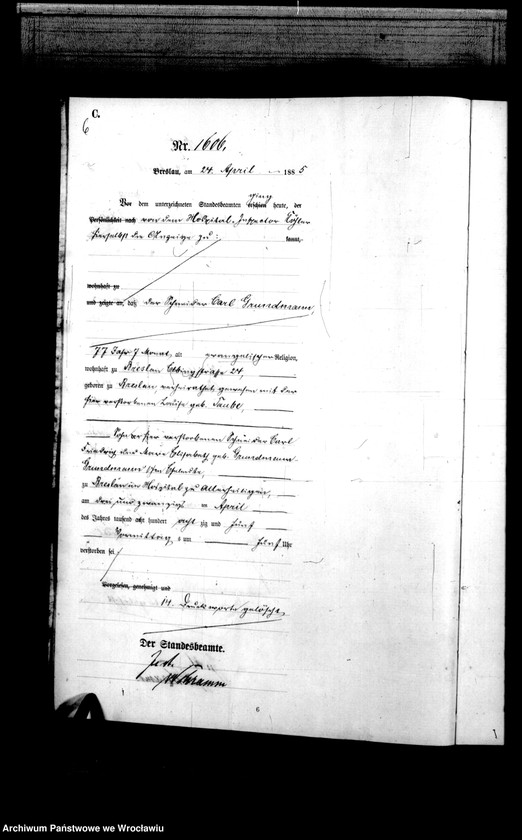 C.
6
Nr. 1606.
Breslau, am 24. April 1885
Vor dem unterzeichneten Standesbeamten erschien ging heute, der
Persönlichkeit nach von dem Hospital-Inspector
hierselbst die Anzeige zu: kannt,
wohnhaft zu
und zeigte an, daß der Schneider Carl Grundmann,
77 Jahr 7 Monat, alt evangelischer Religion,
wohnhaft zu Breslau straße 24,
geboren zu Breslau verheirathet gewesen mit der
hier verstorbenen Louise geb. Taube,
Sohn der hier verstorbenen Schneider Carl
Friedrich und Marie Elisabeth geb. Grundmann
Grundmann'schen Eheleute,
zu Breslau im Hospital zu Allerheiligen,
am drei und zwanzigsten April
des Jahres tausend acht hundert acht zig und fünf
Vormittag s um fünf Uhr
verstorben sei
Vorgelesen, genehmigt und
14 Druckworte gelöscht.
Der Standesbeamte.
6
Archiwum Państwowe we Wrocławiu